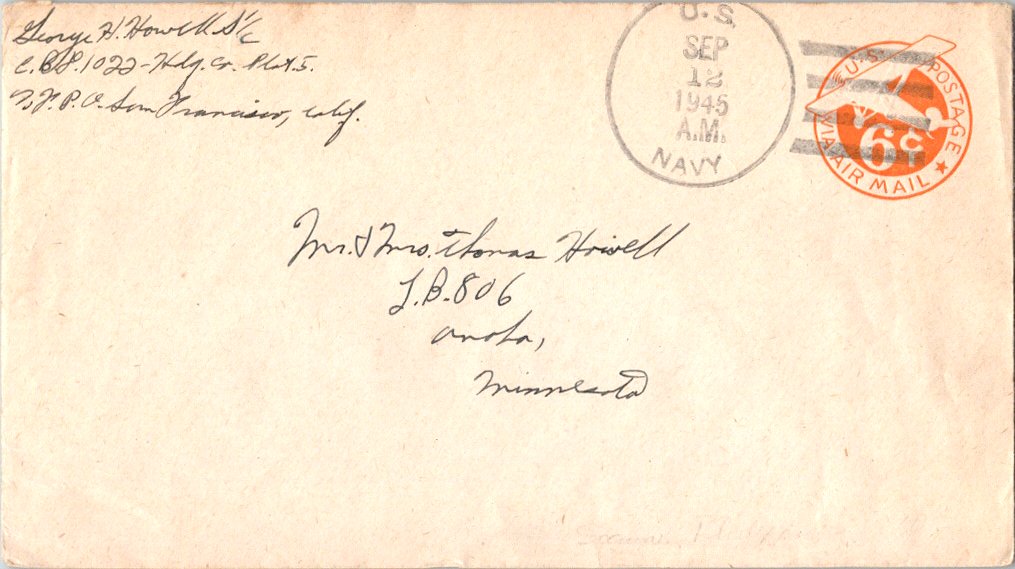 George H. Howell S 1/c
C.B.D. 1022 - Hdq. Co. Plat. 5.
F.P.O. San Francisco, Calif.
U.S.
SEP
12
1945
A.M.
NAVY
U.S. POSTAGE
6¢
VIA AIR MAIL
Mr. & Mrs. Thomas Howell
L.B. 806
Anoka,
Minnesota